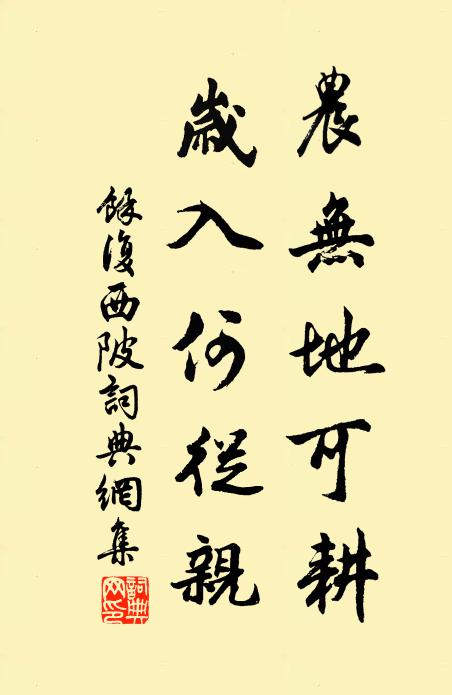 農無地可耕
歲入何從親
餘復西陂詞典網集
詞典网印